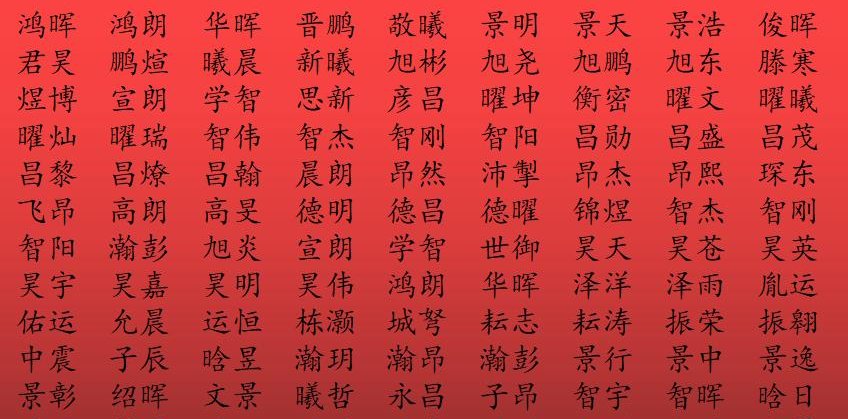 鸿晖 鸿朗 华晖 晋鹏 敬曦 景明 景天 景浩 俊晖
君昊 鹏煊 曦晨 新曦 旭彬 旭尧 旭鹏 旭东 滕寒
煜博 宣朗 学智 思新 彦昌 曜坤 衡密 曜文 曜曦
曜灿 曜瑞 智伟 智杰 智刚 智阳 昌勋 昌盛 昌茂
昌黎 昌燎 昌翰 晨朗 昂然 沛掣 昂杰 昂熙 琛东
飞昂 高朗 高旻 德明 德昌 德曜 锦煜 智杰 智刚
智阳 瀚彭 旭炎 宣朗 学智 世御 昊天 昊苍 昊英
昊宇 昊嘉 昊明 昊伟 鸿朗 华晖 泽洋 泽雨 胤运
佑运 允晨 运恒 栋灏 城弩 耘志 耘涛 振荣 振翱
中震 子辰 晗昱 瀚玥 瀚昂 瀚彭 景行 景中 景逸
景彰 绍晖 文景 曦哲 永昌 子昂 智宇 智晖 晗日